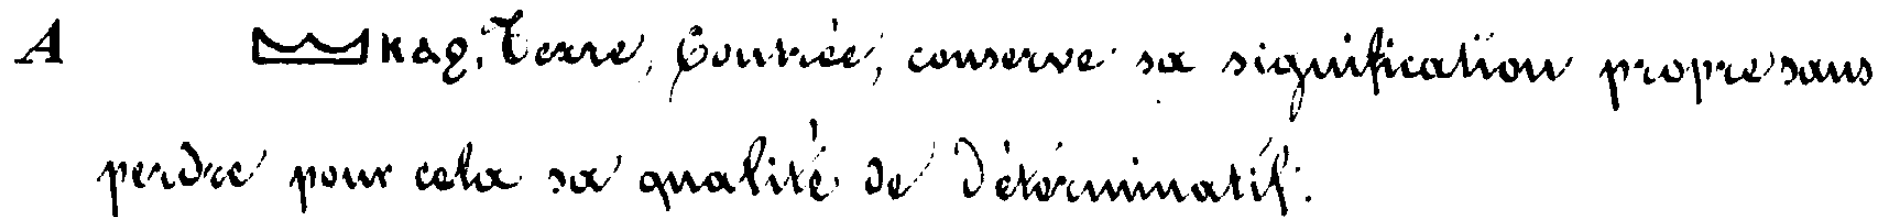 A 𓈋 ⲕⲁϩ, Terre, Contrée, conserve sa signification propre sans
perdre pour cela sa qualité de déterminatif.